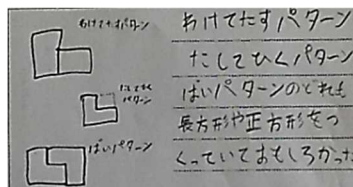 わけてたすパターン
たしてひく
パターン
ばいパターン
わけてたすパターン
たしてひくパターン
ばいパターンのどれも
長方形や正方形をつ
くっていておもしろかった